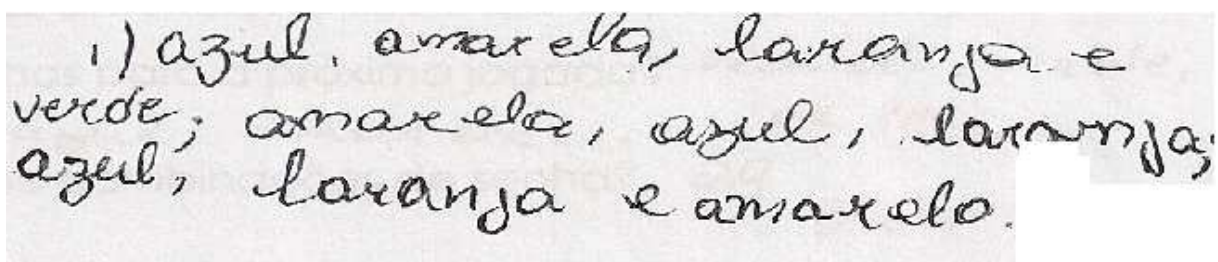 1) azul, amarela, laranja e
verde; amarela, azul, laranja;
azul, laranja e amarelo.